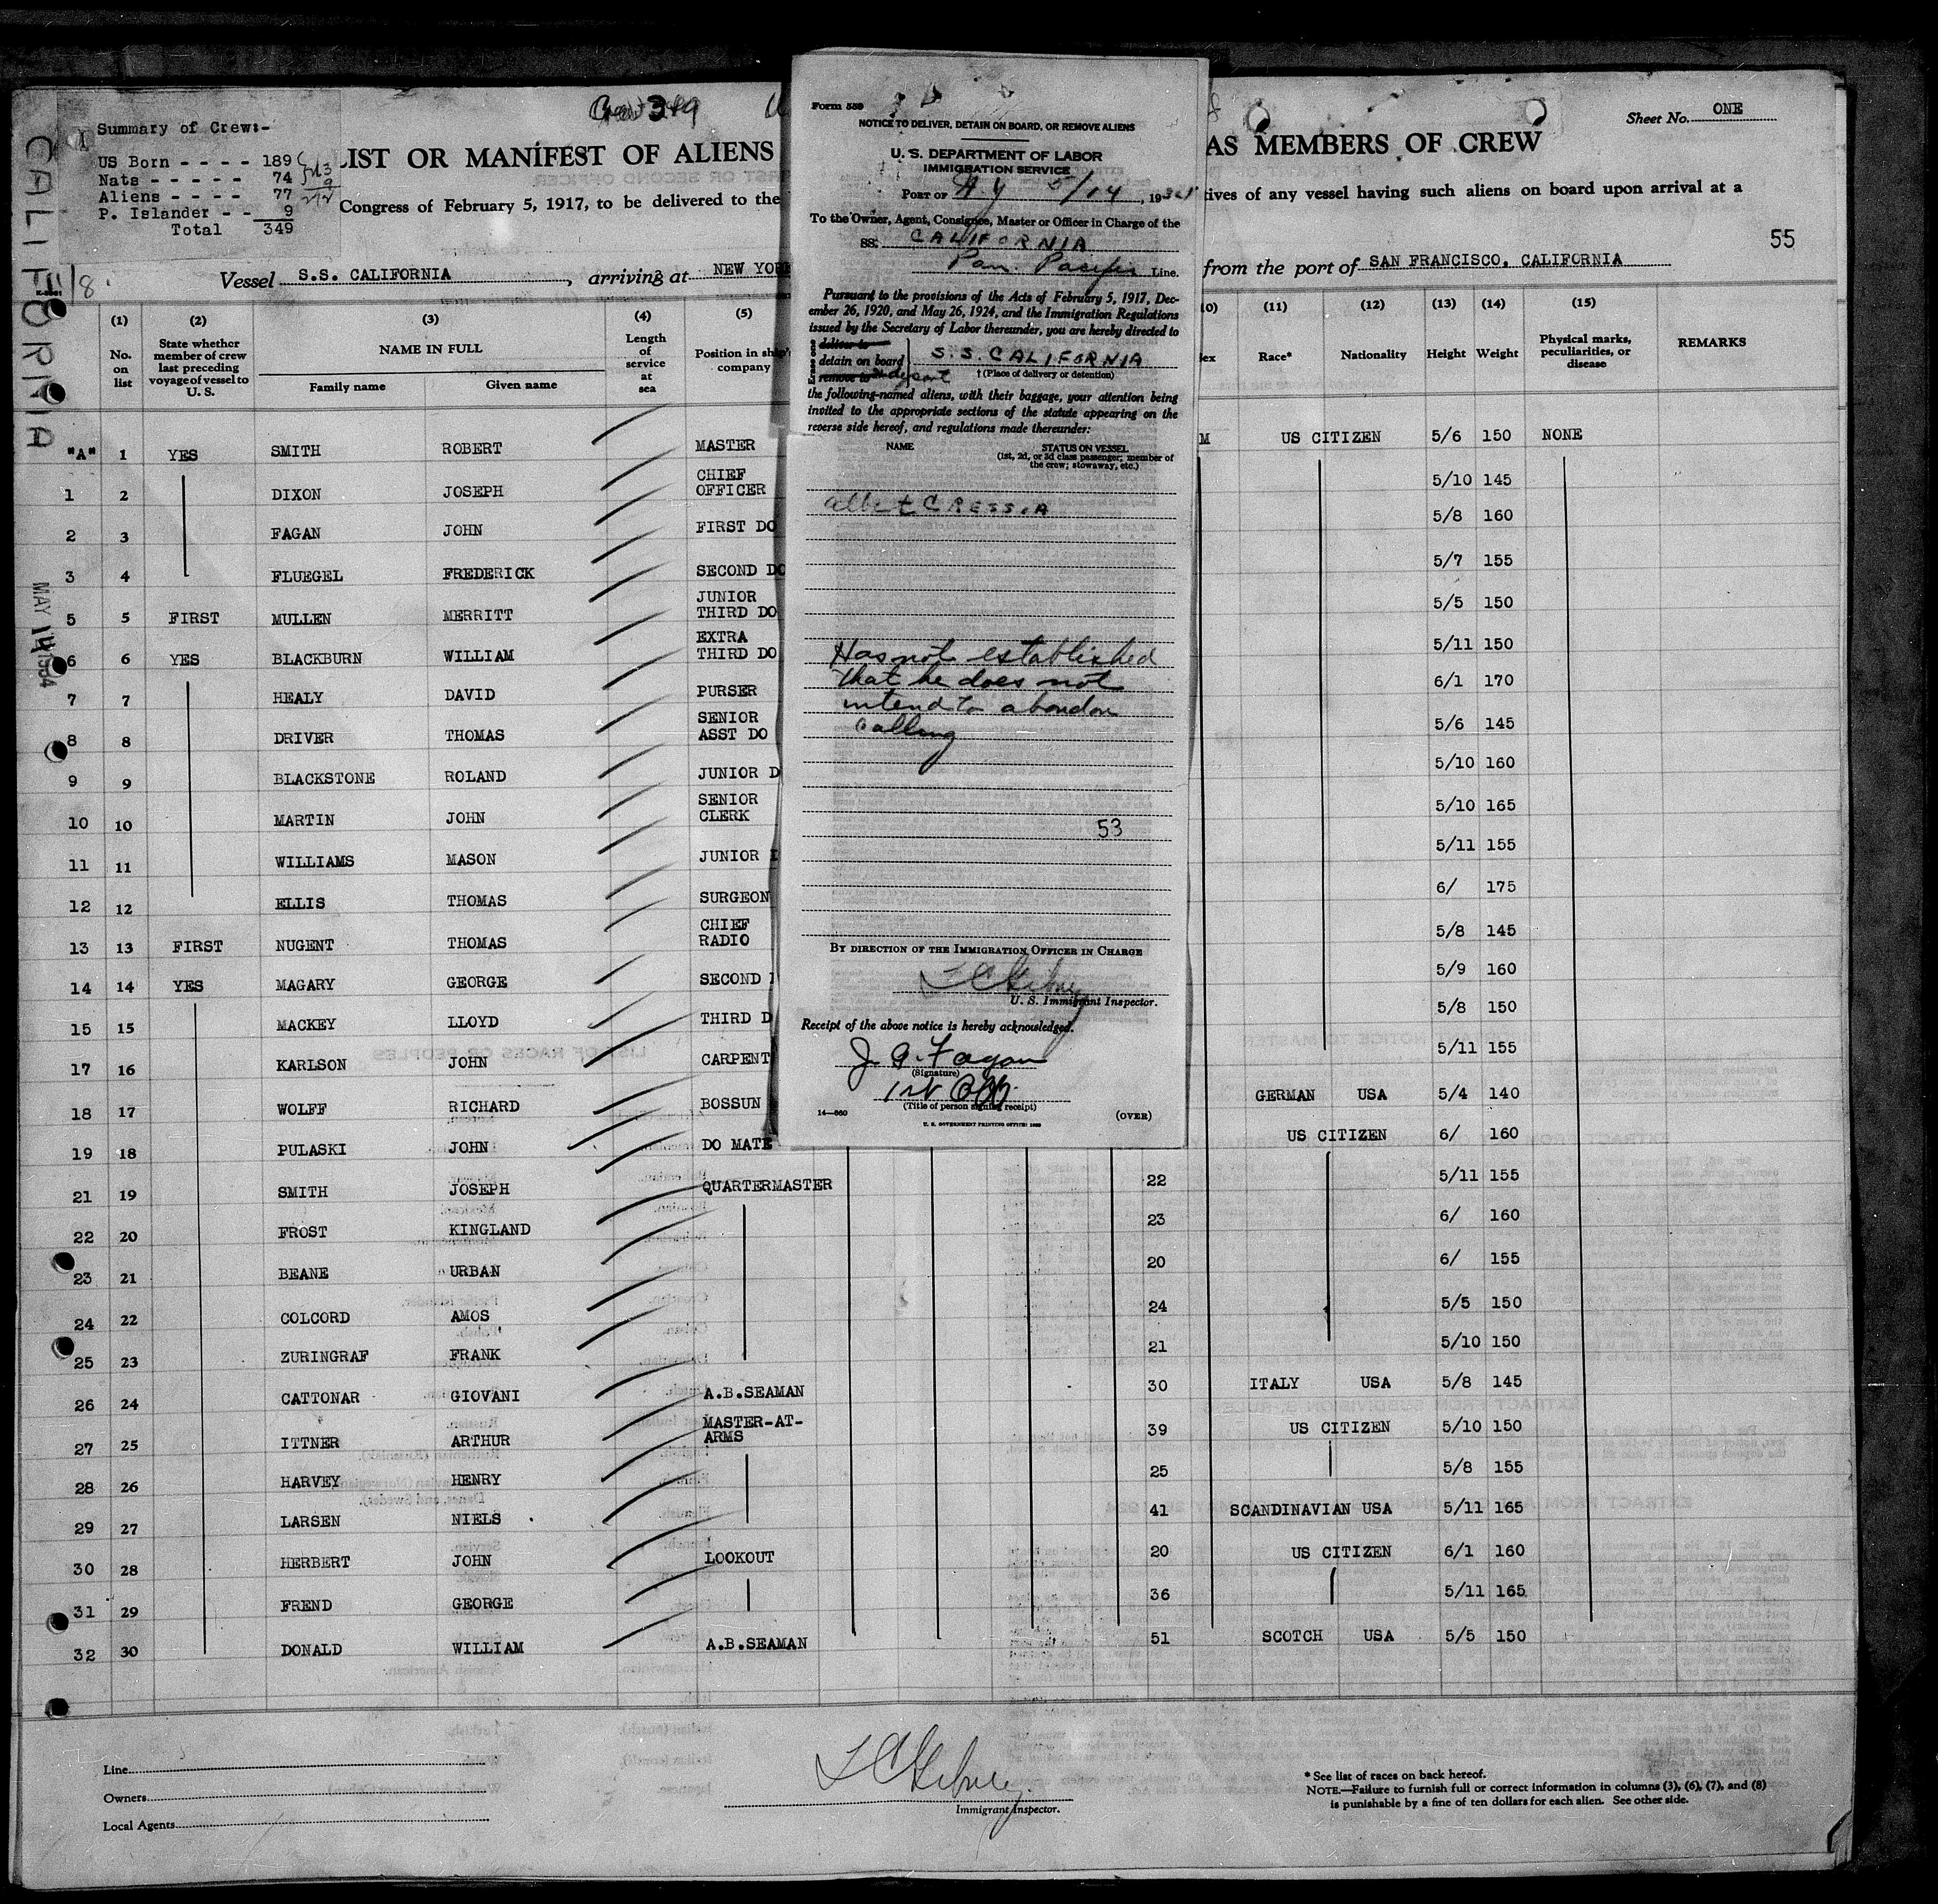 CALIFORNIA
MAY 14 1934
Summary of Crew:-
US Born - - - - 189
Nats - - - - - 74
Aliens - - - - 77
P. Islander - - 9
Total 349
Crew 349
LIST OR MANIFEST OF ALIENS
AS MEMBERS OF CREW
Sheet No. ONE
Congress of February 5, 1917, to be delivered to the
tives of any vessel having such aliens on board upon arrival at a
55
Vessel S.S. CALIFORNIA, arriving at NEW YORK
from the port of SAN FRANCISCO, CALIFORNIA
(1) (2) (3) (4) (5)
No. on list
State whether member of crew last preceding voyage of vessel to U. S.
NAME IN FULL
Family name Given name
Length of service at sea
Position in ship's company
(11) (12) (13) (14) (15)
Race* Nationality Height Weight
Physical marks, peculiarities, or disease
REMARKS
"A" 1 YES SMITH ROBERT MASTER M US CITIZEN 5/6 150 NONE
1 2 DIXON JOSEPH CHIEF OFFICER 5/10 145
2 3 FAGAN JOHN FIRST DO 5/8 160
3 4 FLUEGEL FREDERICK SECOND DO 5/7 155
5 5 FIRST MULLEN MERRITT JUNIOR THIRD DO 5/5 150
6 6 YES BLACKBURN WILLIAM EXTRA THIRD DO 5/11 150
7 7 HEALY DAVID PURSER 6/1 170
8 8 DRIVER THOMAS SENIOR ASST DO 5/6 145
9 9 BLACKSTONE ROLAND JUNIOR D 5/10 160
10 10 MARTIN JOHN SENIOR CLERK 5/10 165
11 11 WILLIAMS MASON JUNIOR 5/11 155
12 12 ELLIS THOMAS SURGEON 6/ 175
13 13 FIRST NUGENT THOMAS CHIEF RADIO 5/8 145
14 14 YES MAGARY GEORGE SECOND 5/9 160
15 15 MACKEY LLOYD THIRD D 5/8 150
17 16 KARLSON JOHN CARPENT 5/11 155
18 17 WOLFF RICHARD BOSSUN GERMAN USA 5/4 140
19 18 PULASKI JOHN DO MATE US CITIZEN 6/ 160
21 19 SMITH JOSEPH QUARTERMASTER 22 5/11 155
22 20 FROST KINGLAND 23 6/ 160
23 21 BEANE URBAN 20 6/ 155
24 22 COLCORD AMOS 24 5/5 150
25 23 ZURINGRAF FRANK 21 5/10 150
26 24 CATTONAR GIOVANI A.B.SEAMAN 30 ITALY USA 5/8 145
27 25 ITTNER ARTHUR MASTER-AT-ARMS 39 US CITIZEN 5/10 150
28 26 HARVEY HENRY 25 5/8 155
29 27 LARSEN NIELS 41 SCANDINAVIAN USA 5/11 165
30 28 HERBERT JOHN LOOKOUT 20 US CITIZEN 6/1 160
31 29 FREND GEORGE 36 5/11 165
32 30 DONALD WILLIAM A.B.SEAMAN 51 SCOTCH USA 5/5 150
Line
Owners
Local Agents
Immigrant Inspector.
* See list of races on back hereof.
NOTE.—Failure to furnish full or correct information in columns (3), (6), (7), and (8)
is punishable by a fine of ten dollars for each alien. See other side.
Form 559
NOTICE TO DELIVER, DETAIN ON BOARD, OR REMOVE ALIENS
U. S. DEPARTMENT OF LABOR
IMMIGRATION SERVICE
PORT OF N.Y 5/14, 1934
To the Owner, Agent, Consignee, Master or Officer in Charge of the
SS. CALIFORNIA
Pan. Pacific Line.
Pursuant to the provisions of the Acts of February 5, 1917, Dec-
ember 26, 1920, and May 26, 1924, and the Immigration Regulations
issued by the Secretary of Labor thereunder, you are hereby directed to
Erase one
deliver to
detain on board
remove to
S.S. CALIFORNIA
† (Place of delivery or detention)
the following-named aliens, with their baggage, your attention being
invited to the appropriate sections of the statute appearing on the
reverse side hereof, and regulations made thereunder:
NAME STATUS ON VESSEL
(1st, 2d, or 3d class passenger; member of
the crew; stowaway, etc.)
Albert CRESSIA
Has not established
that he does not
intend to abandon
calling
53
BY DIRECTION OF THE IMMIGRATION OFFICER IN CHARGE
U. S. Immigrant Inspector.
Receipt of the above notice is hereby acknowledged.
J. G. Fagan
(Signature)
1st Off.
(Title of person signing receipt)
14—560 (OVER)
U. S. GOVERNMENT PRINTING OFFICE: